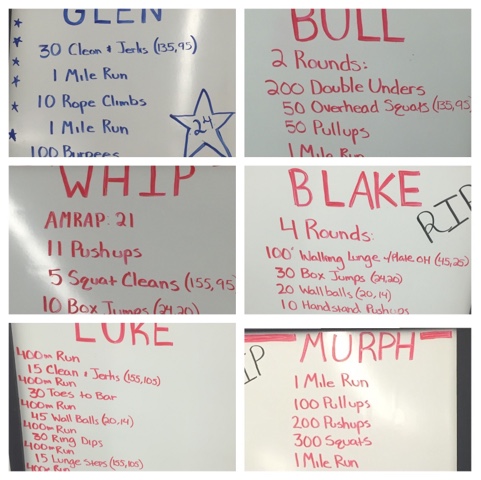 GLEN
30 Clean & Jerks (135,95)
1 Mile Run
10 Rope Climbs
1 Mile Run
100 Burpees
24
BULL
2 Rounds:
200 Double Unders
50 Overhead Squats (135,95
50 Pullups
1 Mile Run
WHIP
AMRAP: 21
11 Pushups
5 Squat Cleans (155,95
10 Box Jumps (24,20)
BLAKE
RIP
4 Rounds:
100' Walking Lunge w/Plate OH (45,25)
30 Box Jumps (24,20)
20 Wallballs (20,14)
10 Handstand Pushups
LUKE
400m Run
15 Clean & Jerks (155,105)
400m Run
30 Toes to Bar
400m Run
45 Wall Balls (20,14)
400m Run
30 Ring Dips
400m Run
15 Lunge Steps (155,105)
400m Run
IP
MURPH
1 Mile Run
100 Pullups
200 Pushups
300 Squats
1 Mile Run